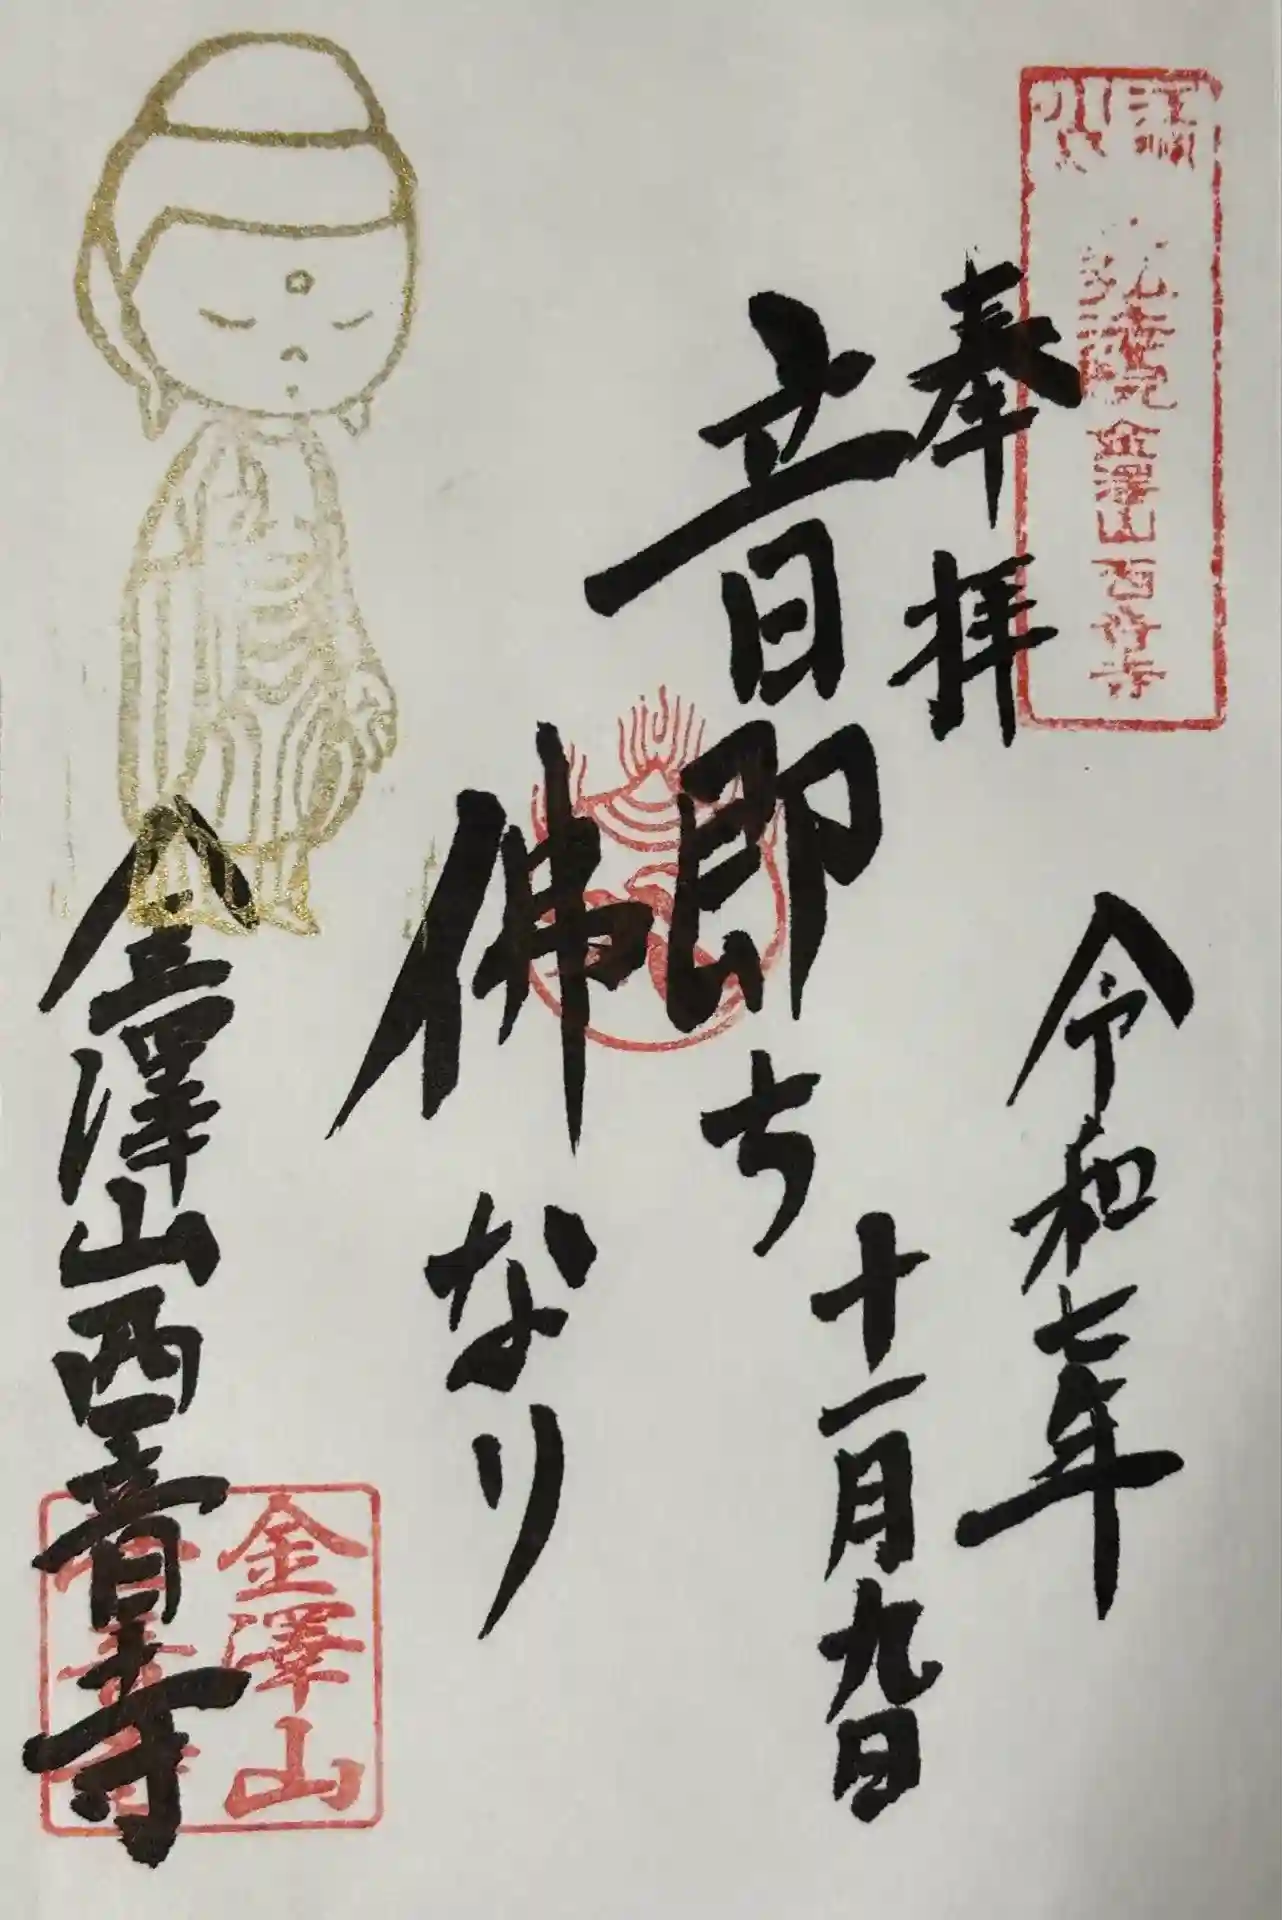 金澤山西音寺
奉拝
令和七年
十一月九日
音即ち
佛なり
金澤山西音寺
金澤山